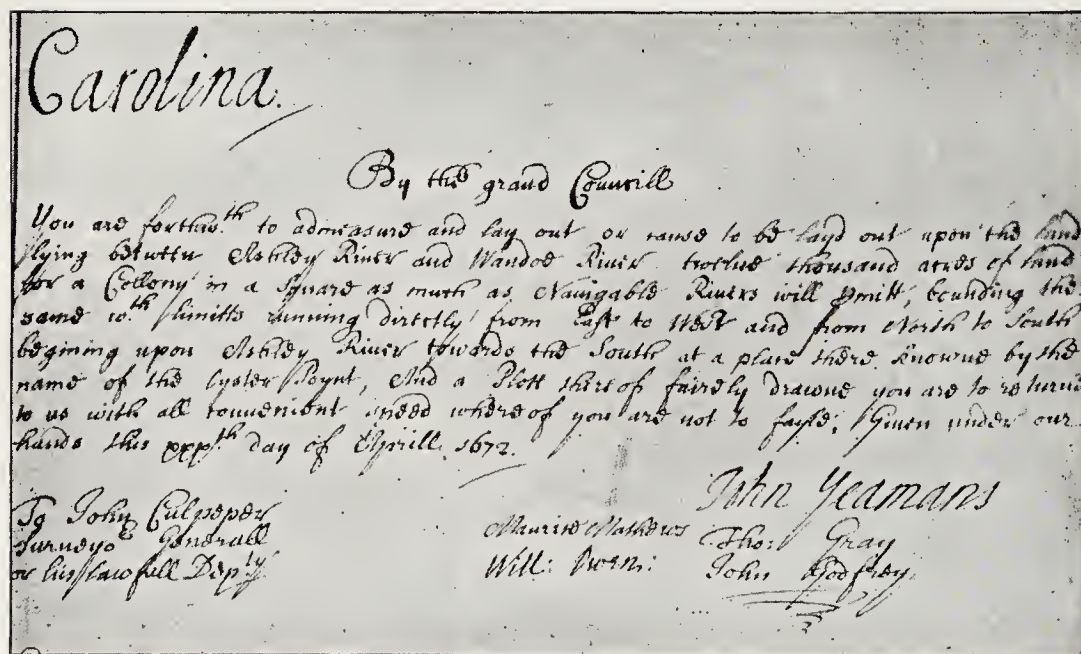 Carolina.
By the grand Councill
You are forthw.th to admeasure and lay out or cause to be layd out upon the land
lying betwen Ashley River and Wandoe River twelve thousand acres of land
for a Collony in a square as much as Navigable Rivers will pmitt, bounding the
same w.th limitts running directly from East to West and from North to South
begining upon Ashley River towards the South at a place there knowne by the
name of the Oyster Poynt, And a Plott thereof fairely drawne you are to returne
to us with all convenient speed whereof you are not to fayle; Given under our
hands this xxxth day of Aprill 1672.
To John Culpeper
Surveyor Generall
or his lawfull Depty.
John Yeamans
Maurice Mathews Tho: Gray
Will: Owen: John Godfrey.